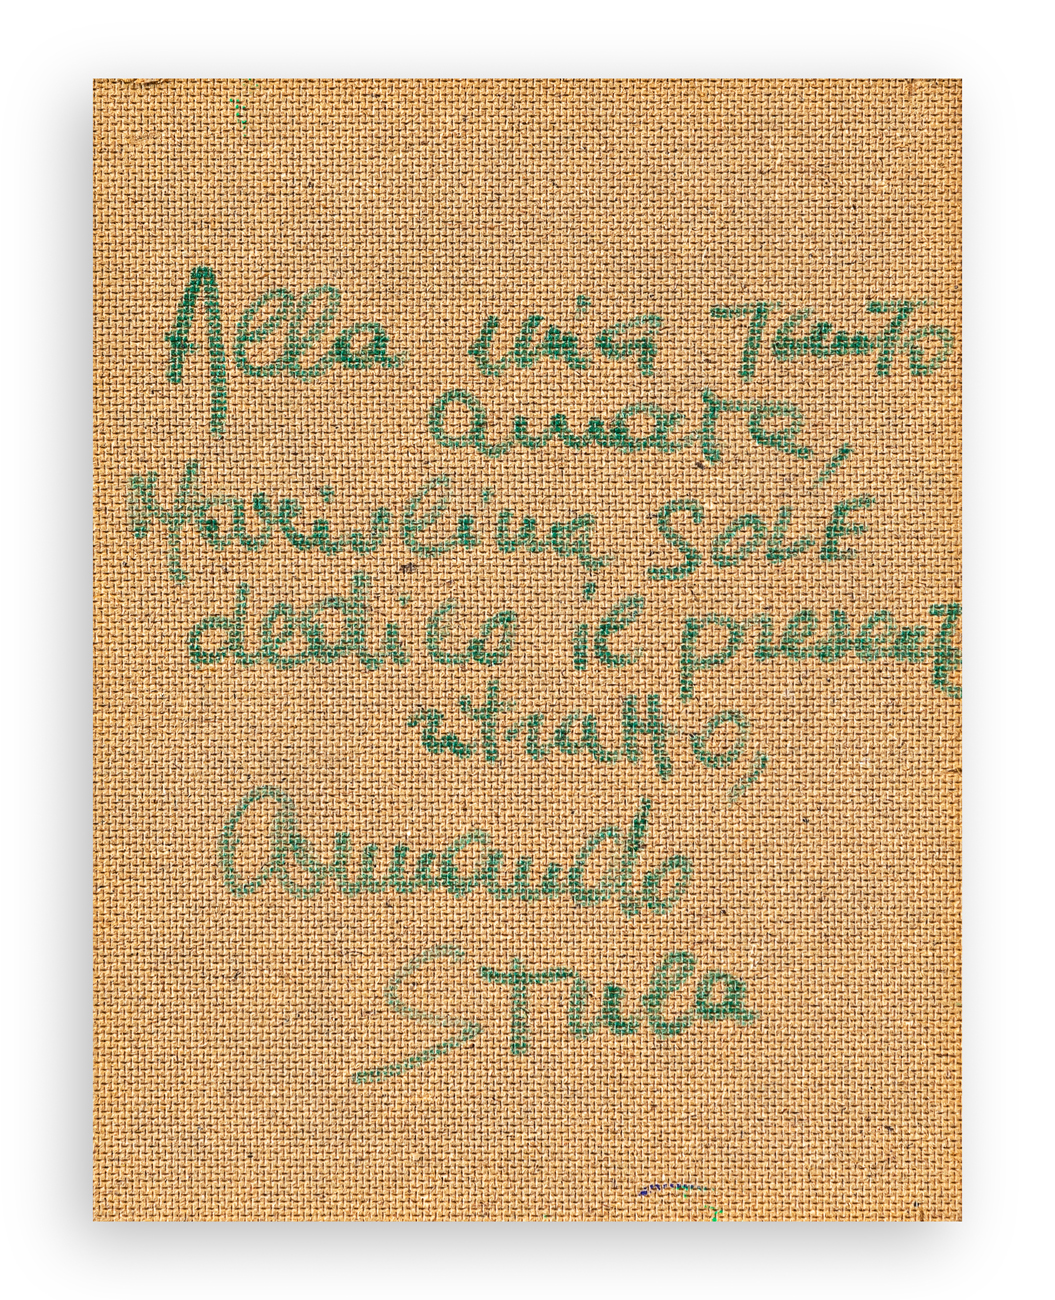 Alla mia Tanto
amata,
Mariolina Solè
dedico il present
ritratto,
Armando
Stula